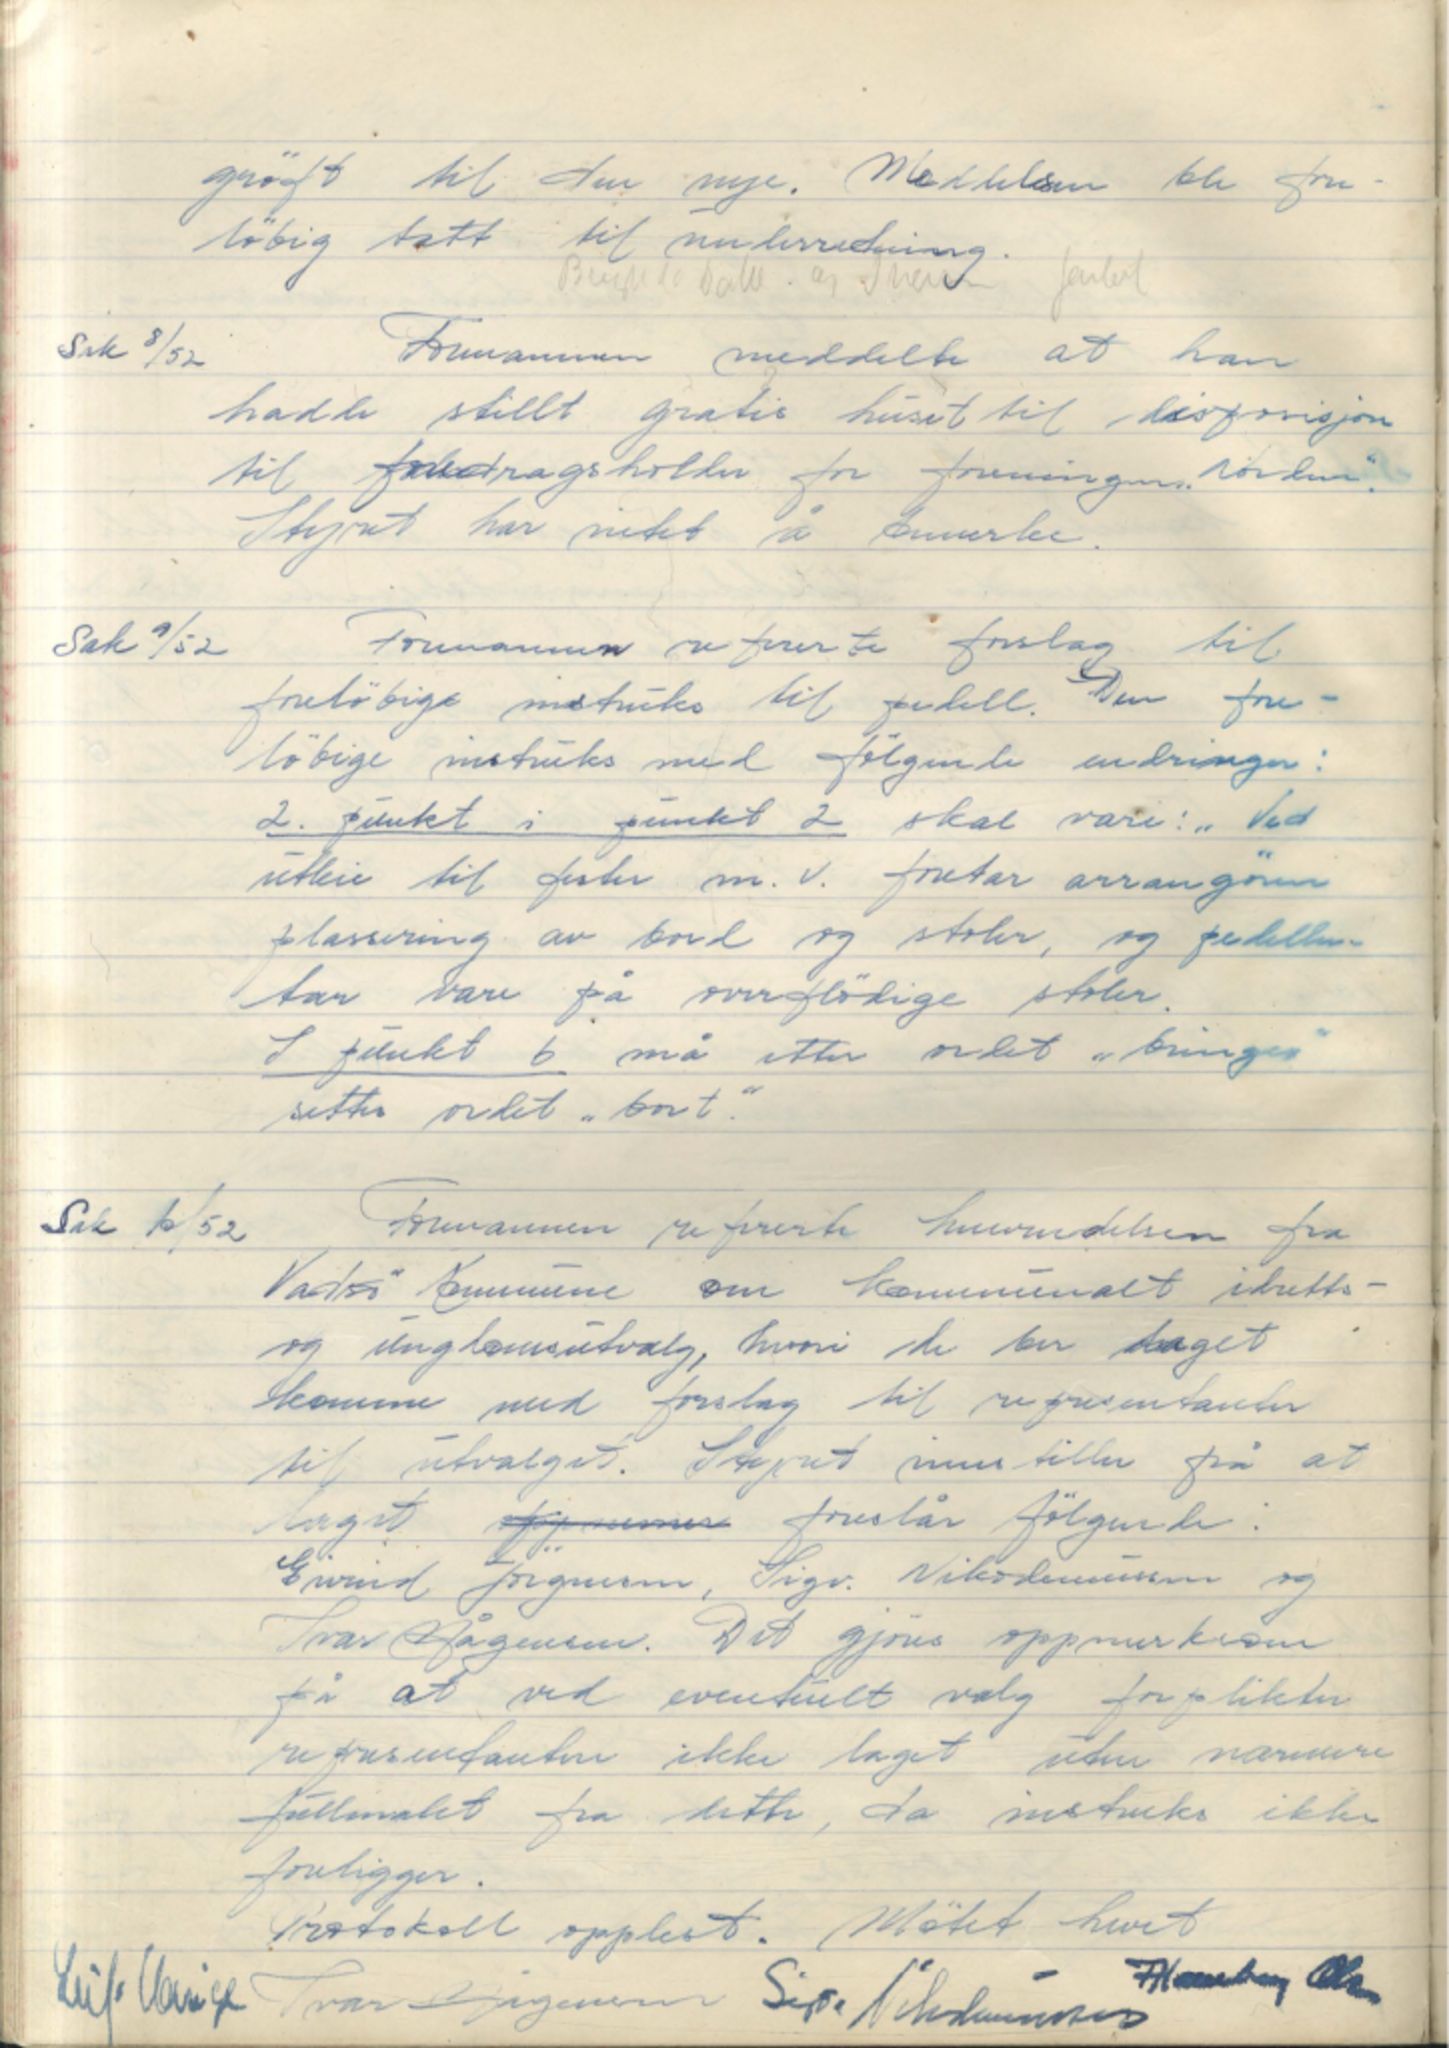 gröft til den nye. Meddelelsen ble fore-
löbig tatt til underretning.
Sak 8/52 Formannen meddelte at han
hadde stillt gratis huset til disposisjon
til foredragsholder for foreningen „Norden".
Styret har intet å bemerke.
Sak 9/52 Formannen refererte forslag til
forelöbige instruks til pedell. Den fore-
löbige instruks med fölgende endringer:
2. punkt i punkt 2 skal være: „Ved
utleie til fester m.v. foretar arrangören
plassering av bord og stoler, og pedellen
tar vare på overflödige stoler.
I punkt 6 må etter ordet „bringes"
settes ordet „bort".
Sak 10/52 Formannen refererte henvendelsen fra
Vadsö kommune om kommunalt idretts-
og ungdomsutvalg, hvori de ber laget
komme med forslag til representanter
til utvalget. Styret innstiller på at
laget oppnevner foreslår fölgende:
Eivind Jörgensen, Sigv. Nikodemussen og
Ivar Hågensen. Det gjöres oppmerksom
på at ved eventuelt valg forplikter
representantene ikke laget uten nærmere
fullmakt fra dette, da instruks ikke
foreligger.
Protokoll opplest. Mötet hevet
Leif Ivar Hågensen Sigv. Nikodemussen